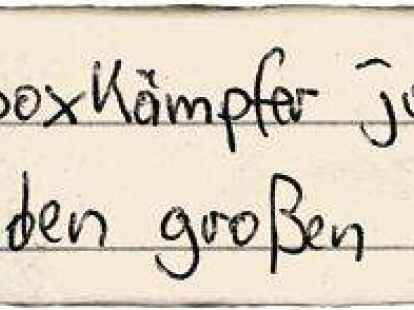 boxkämpfer j
den großen